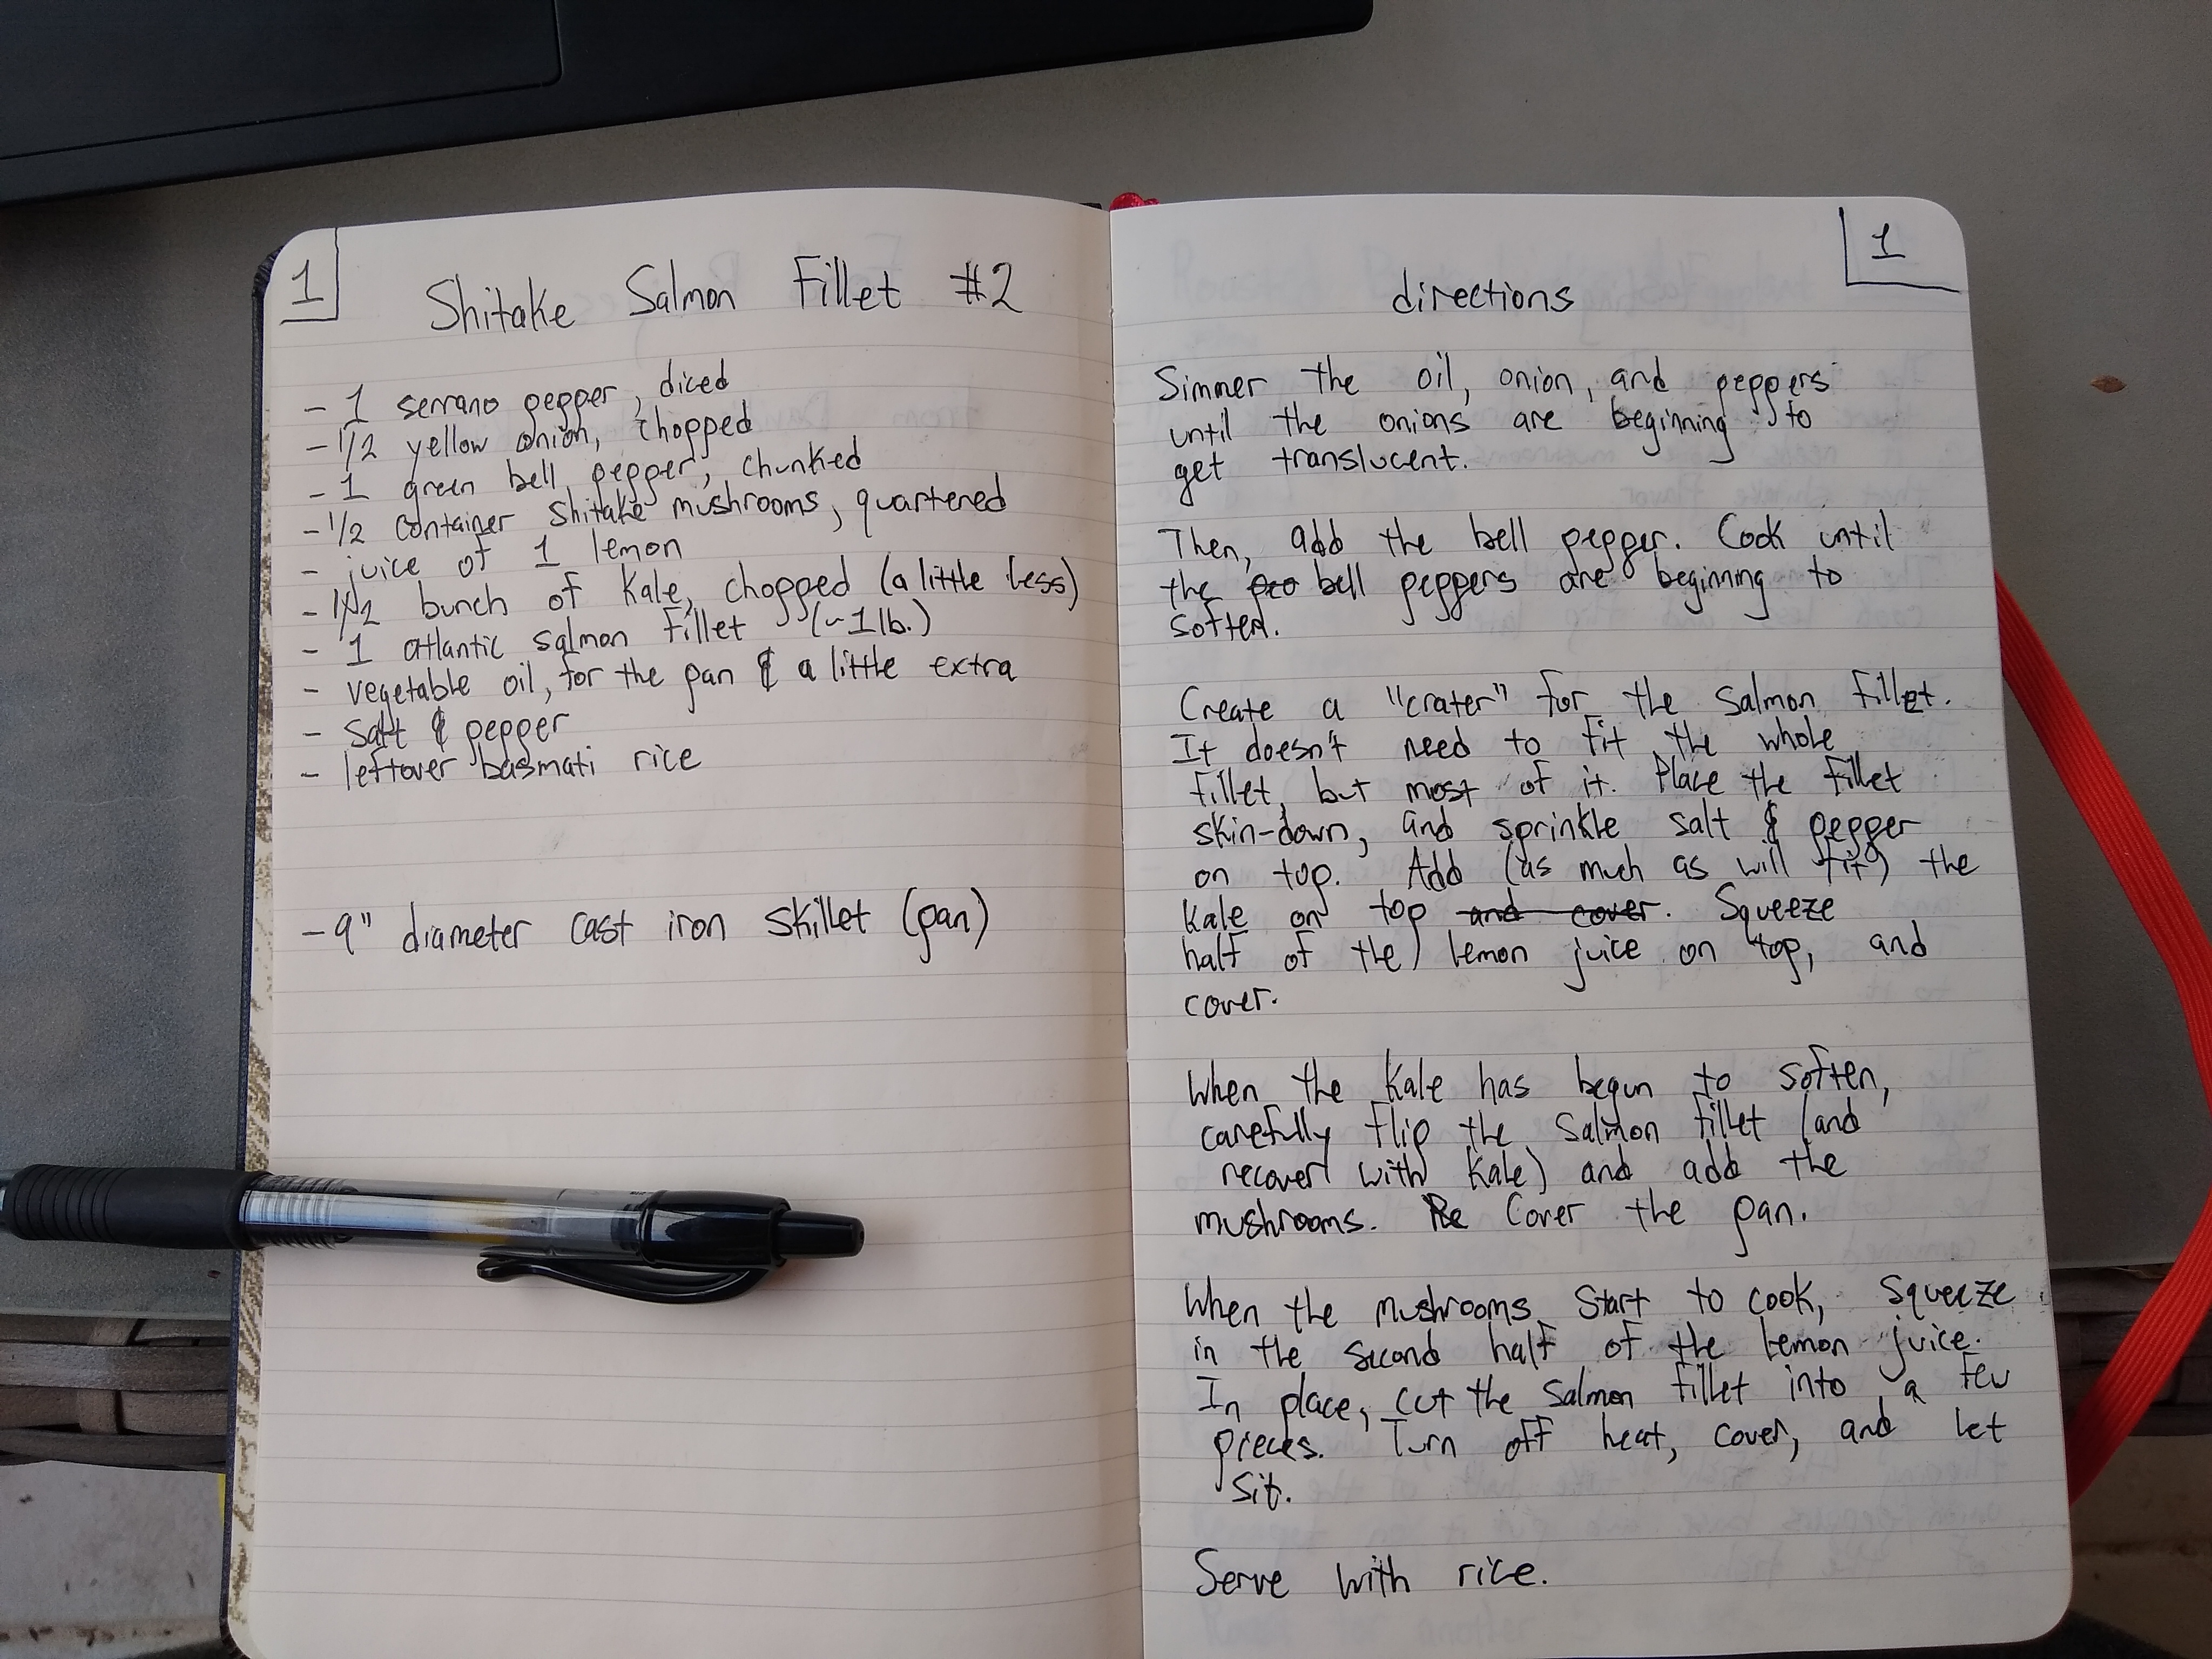 1
Shitake Salmon Fillet #2
- 1 serrano pepper, diced
- 1/2 yellow onion, chopped
- 1 green bell pepper, chunked
- 1/2 container shitake mushrooms, quartered
- juice of 1 lemon
- 1/2 bunch of kale, chopped (a little less)
- 1 atlantic salmon fillet (~1lb.)
- vegetable oil, for the pan & a little extra
- salt & pepper
- leftover basmati rice
- 9" diameter cast iron skillet (pan)
1
directions
Simmer the oil, onion, and peppers
until the onions are beginning to
get translucent.
Then, add the bell pepper. Cook until
the peo bell peppers are beginning to
soften.
Create a "crater" for the salmon fillet.
It doesn't need to fit the whole
fillet, but most of it. Place the fillet
skin-down, and sprinkle salt & pepper
on top. Add (as much as will fit) the
kale on top and cover. Squeeze
half of the lemon juice on top, and
cover.
When the kale has begun to soften,
carefully flip the salmon fillet (and
recover with kale) and add the
mushrooms. Re Cover the pan.
When the mushrooms start to cook, squeeze
in the second half of the lemon juice.
In place, cut the salmon fillet into a few
pieces. Turn off heat, cover, and let
sit.
Serve with rice.